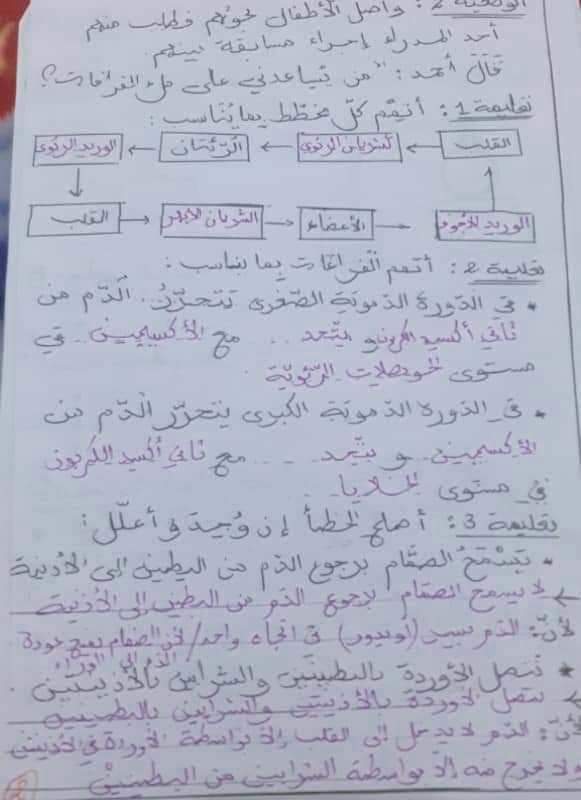 الوضعية 2: واصل الأطفال لحوتهم وطلب منهم
أحد المدراء إجراء مسابقة بينهم
فقال أحمد: "من يساعدني على ملء الفراغات؟
تعليمة 1: أتمم كل مخطط بما يناسب:
القلب ← الشريان الرئوي ← الرئتان ← الوريد الرئوي
الوريد الأجوف ← الأعضاء ← الشريان الأبهر ← القلب
تعليمة 2: أتمم الفراغات بما يناسب:
* في الدورة الدموية الصغرى تتحرّر الدّم من
ثاني أكسيد الكربون و يتّحد ... مع الأكسيجين في
مستوى الحويصلات الرّئويّة
* في الدورة الدموية الكبرى يتحرّر الدّم من
الأكسيجين و يتّحد ... مع ثاني أكسيد الكربون
في مستوى الخلايا..
تعليمة 3: أصلح الخطأ إن وُجد و أعلّل:
* يَسْمَحُ الصمّام برجوع الدم من البطين إلى الأذينة
لا يسمح الصمّام برجوع الدم من البطين إلى الأذينة
لأنّ: الدم يسير في اتجاه واحد / لأن الصمام يمنع عودة
الدم إلى الوراء
* تتصل الأوردة بالبطينين والشرايين بالأذينتين.
تتصل الأوردة بالأذينتين والشرايين بالبطينين
لأنّ: الدّم لا يدخل إلى القلب إلاّ بواسطة الأوردة في الأذينتين
ولا يخرج منه إلاّ بواسطة الشرايين من البطينين